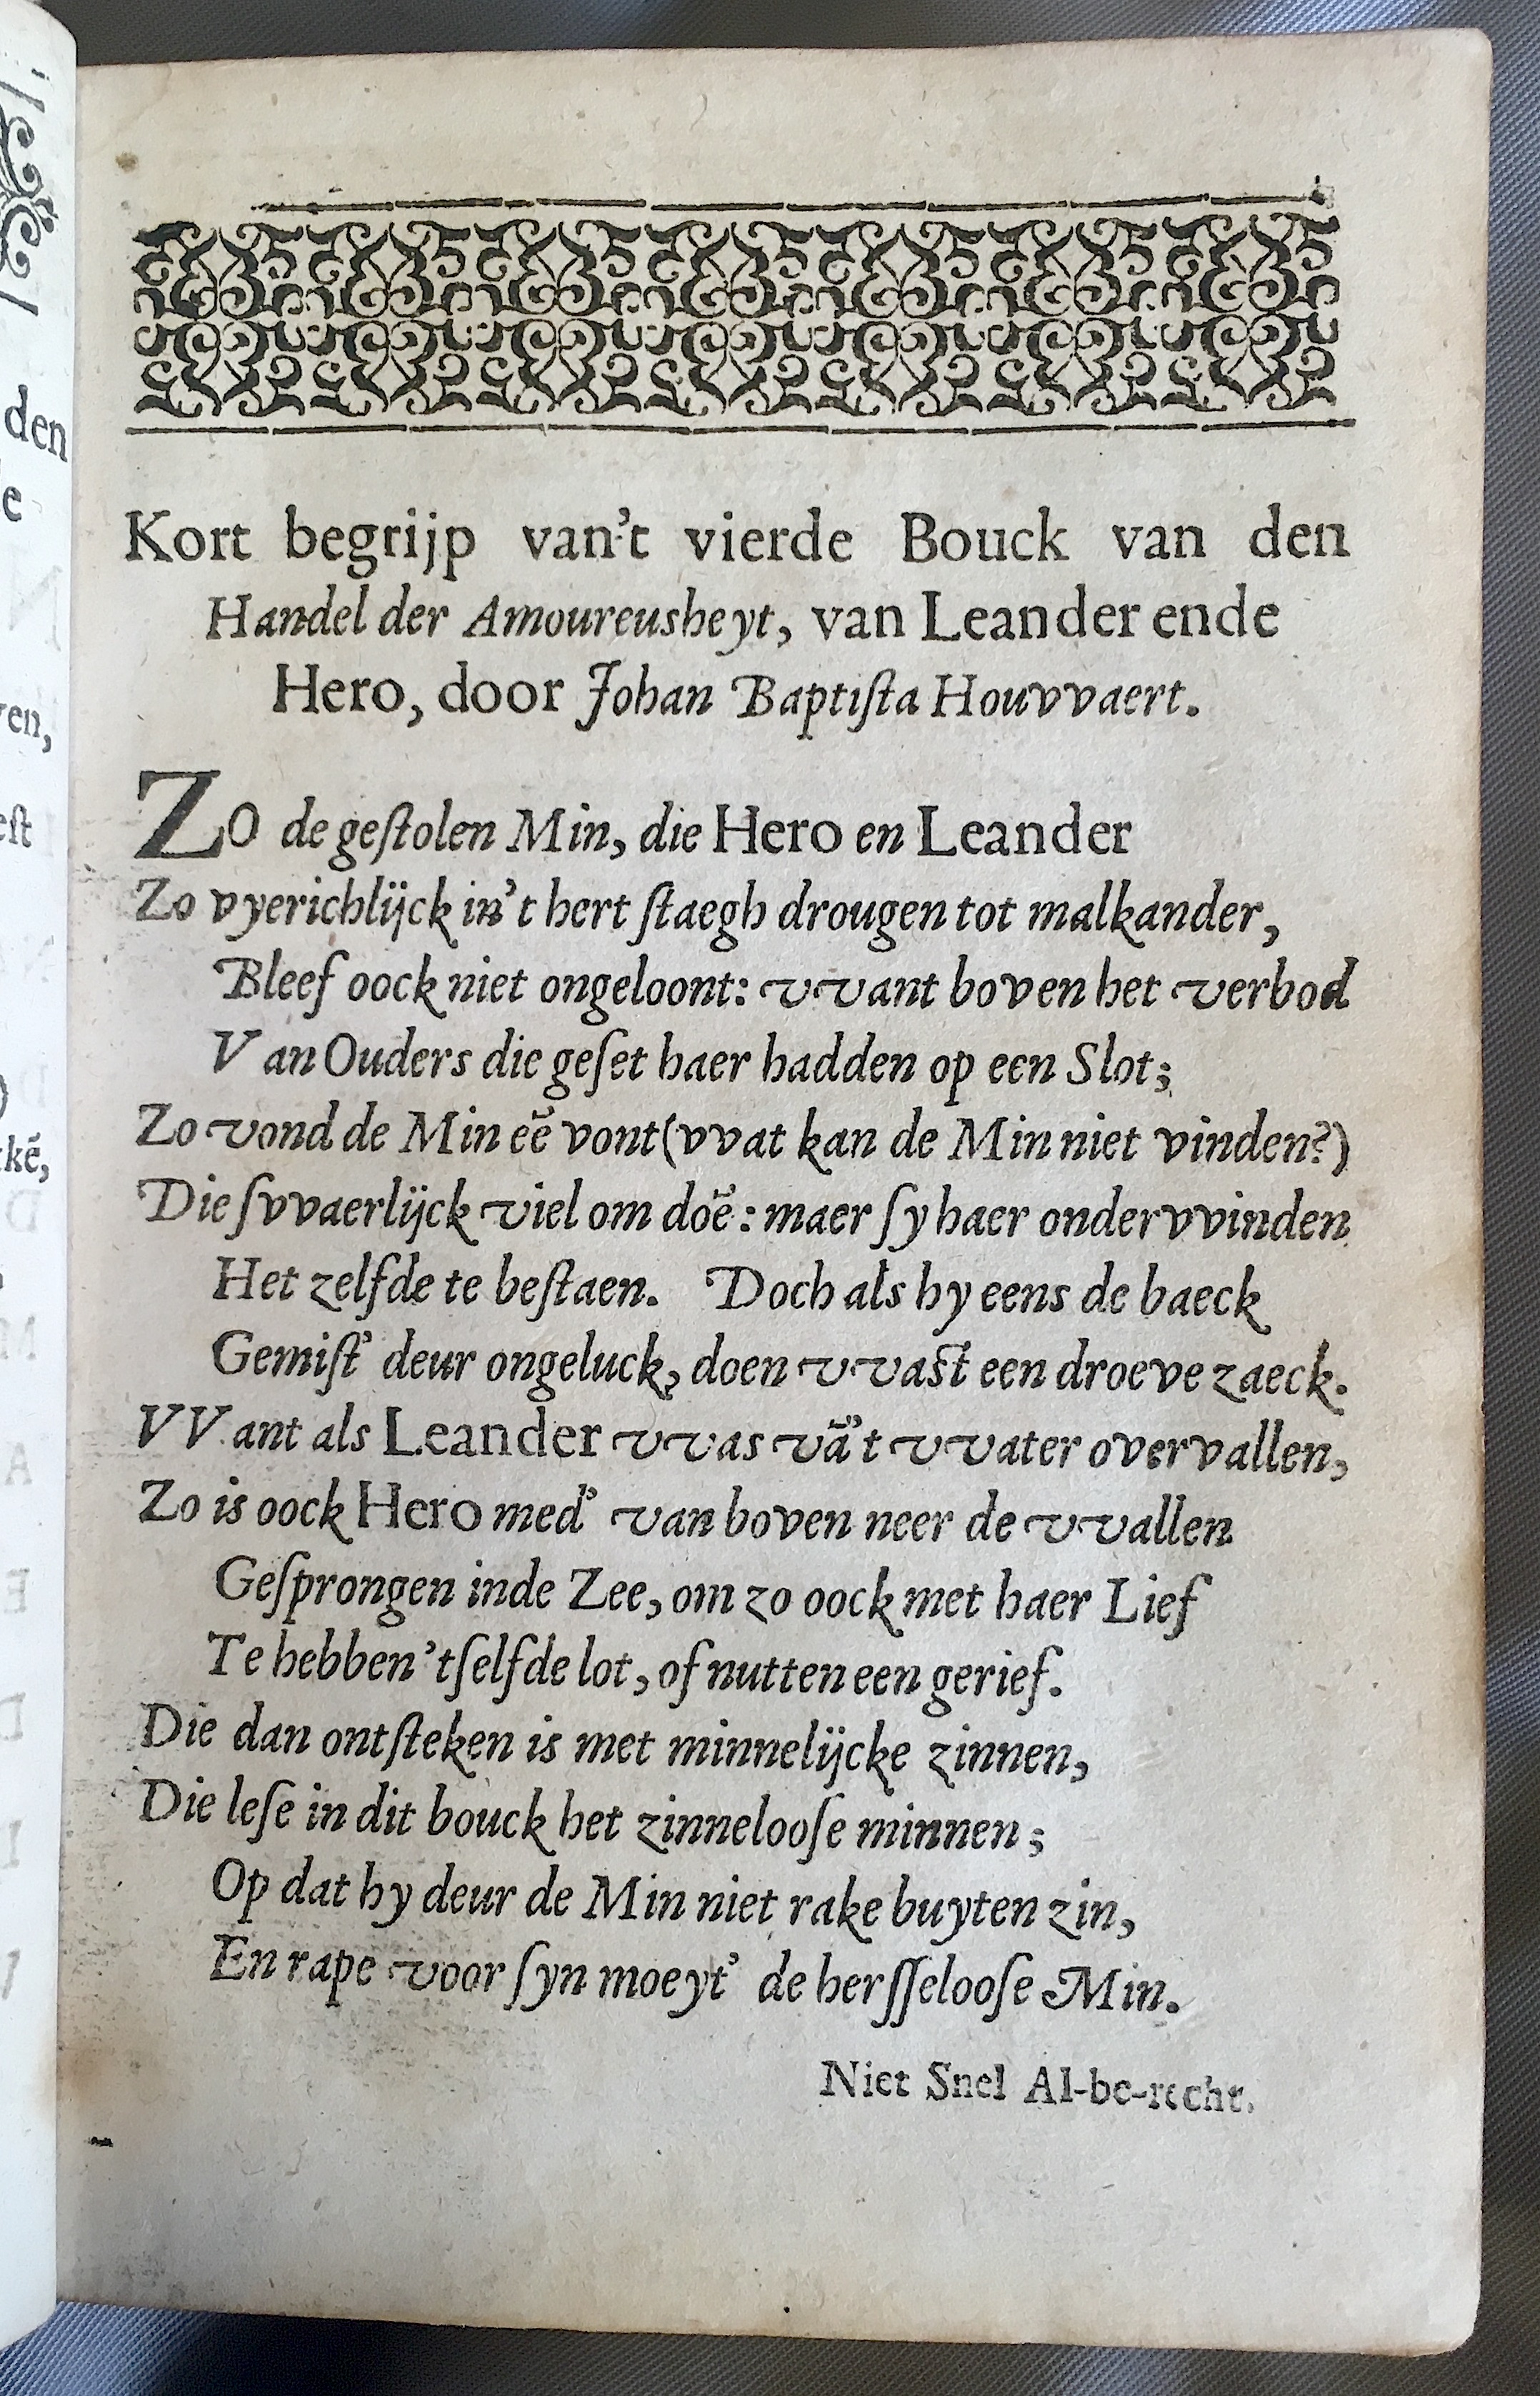 den
e
ven,
eſt
kē,
Kort begrijp van't vierde Bouck van den
Handel der Amoureusheyt, van Leander ende
Hero, door Johan Baptiſta Houvvaert.
ZO de geſtolen Min, die Hero en Leander
Zo vyerichlijck in't hert ſtaegh drougen tot malkander,
Bleef oock niet ongeloont: vvant boven het verbod
Van Ouders die geſet haer hadden op een Slot;
Zo vond de Min eē vont (vvat kan de Min niet vinden?)
Die ſvvaerlijck viel om doē: maer ſy haer ondervvinden
Het zelfde te beſtaen. Doch als hy eens de baeck
Gemiſt' deur ongeluck, doen vvaſt een droeve zaeck.
VVant als Leander vvas vā't vvater overvallen,
Zo is oock Hero med' van boven neer de vvallen
Geſprongen inde Zee, om zo oock met haer Lief
Te hebben 'tſelfde lot, of nutten een gerief.
Die dan ontſteken is met minnelijcke zinnen,
Die leſe in dit bouck het zinnelooſe minnen;
Op dat hy deur de Min niet rake buyten zin,
En rape voor ſyn moeyt' de herſſelooſe Min.
Niet Snel Al-be-recht.